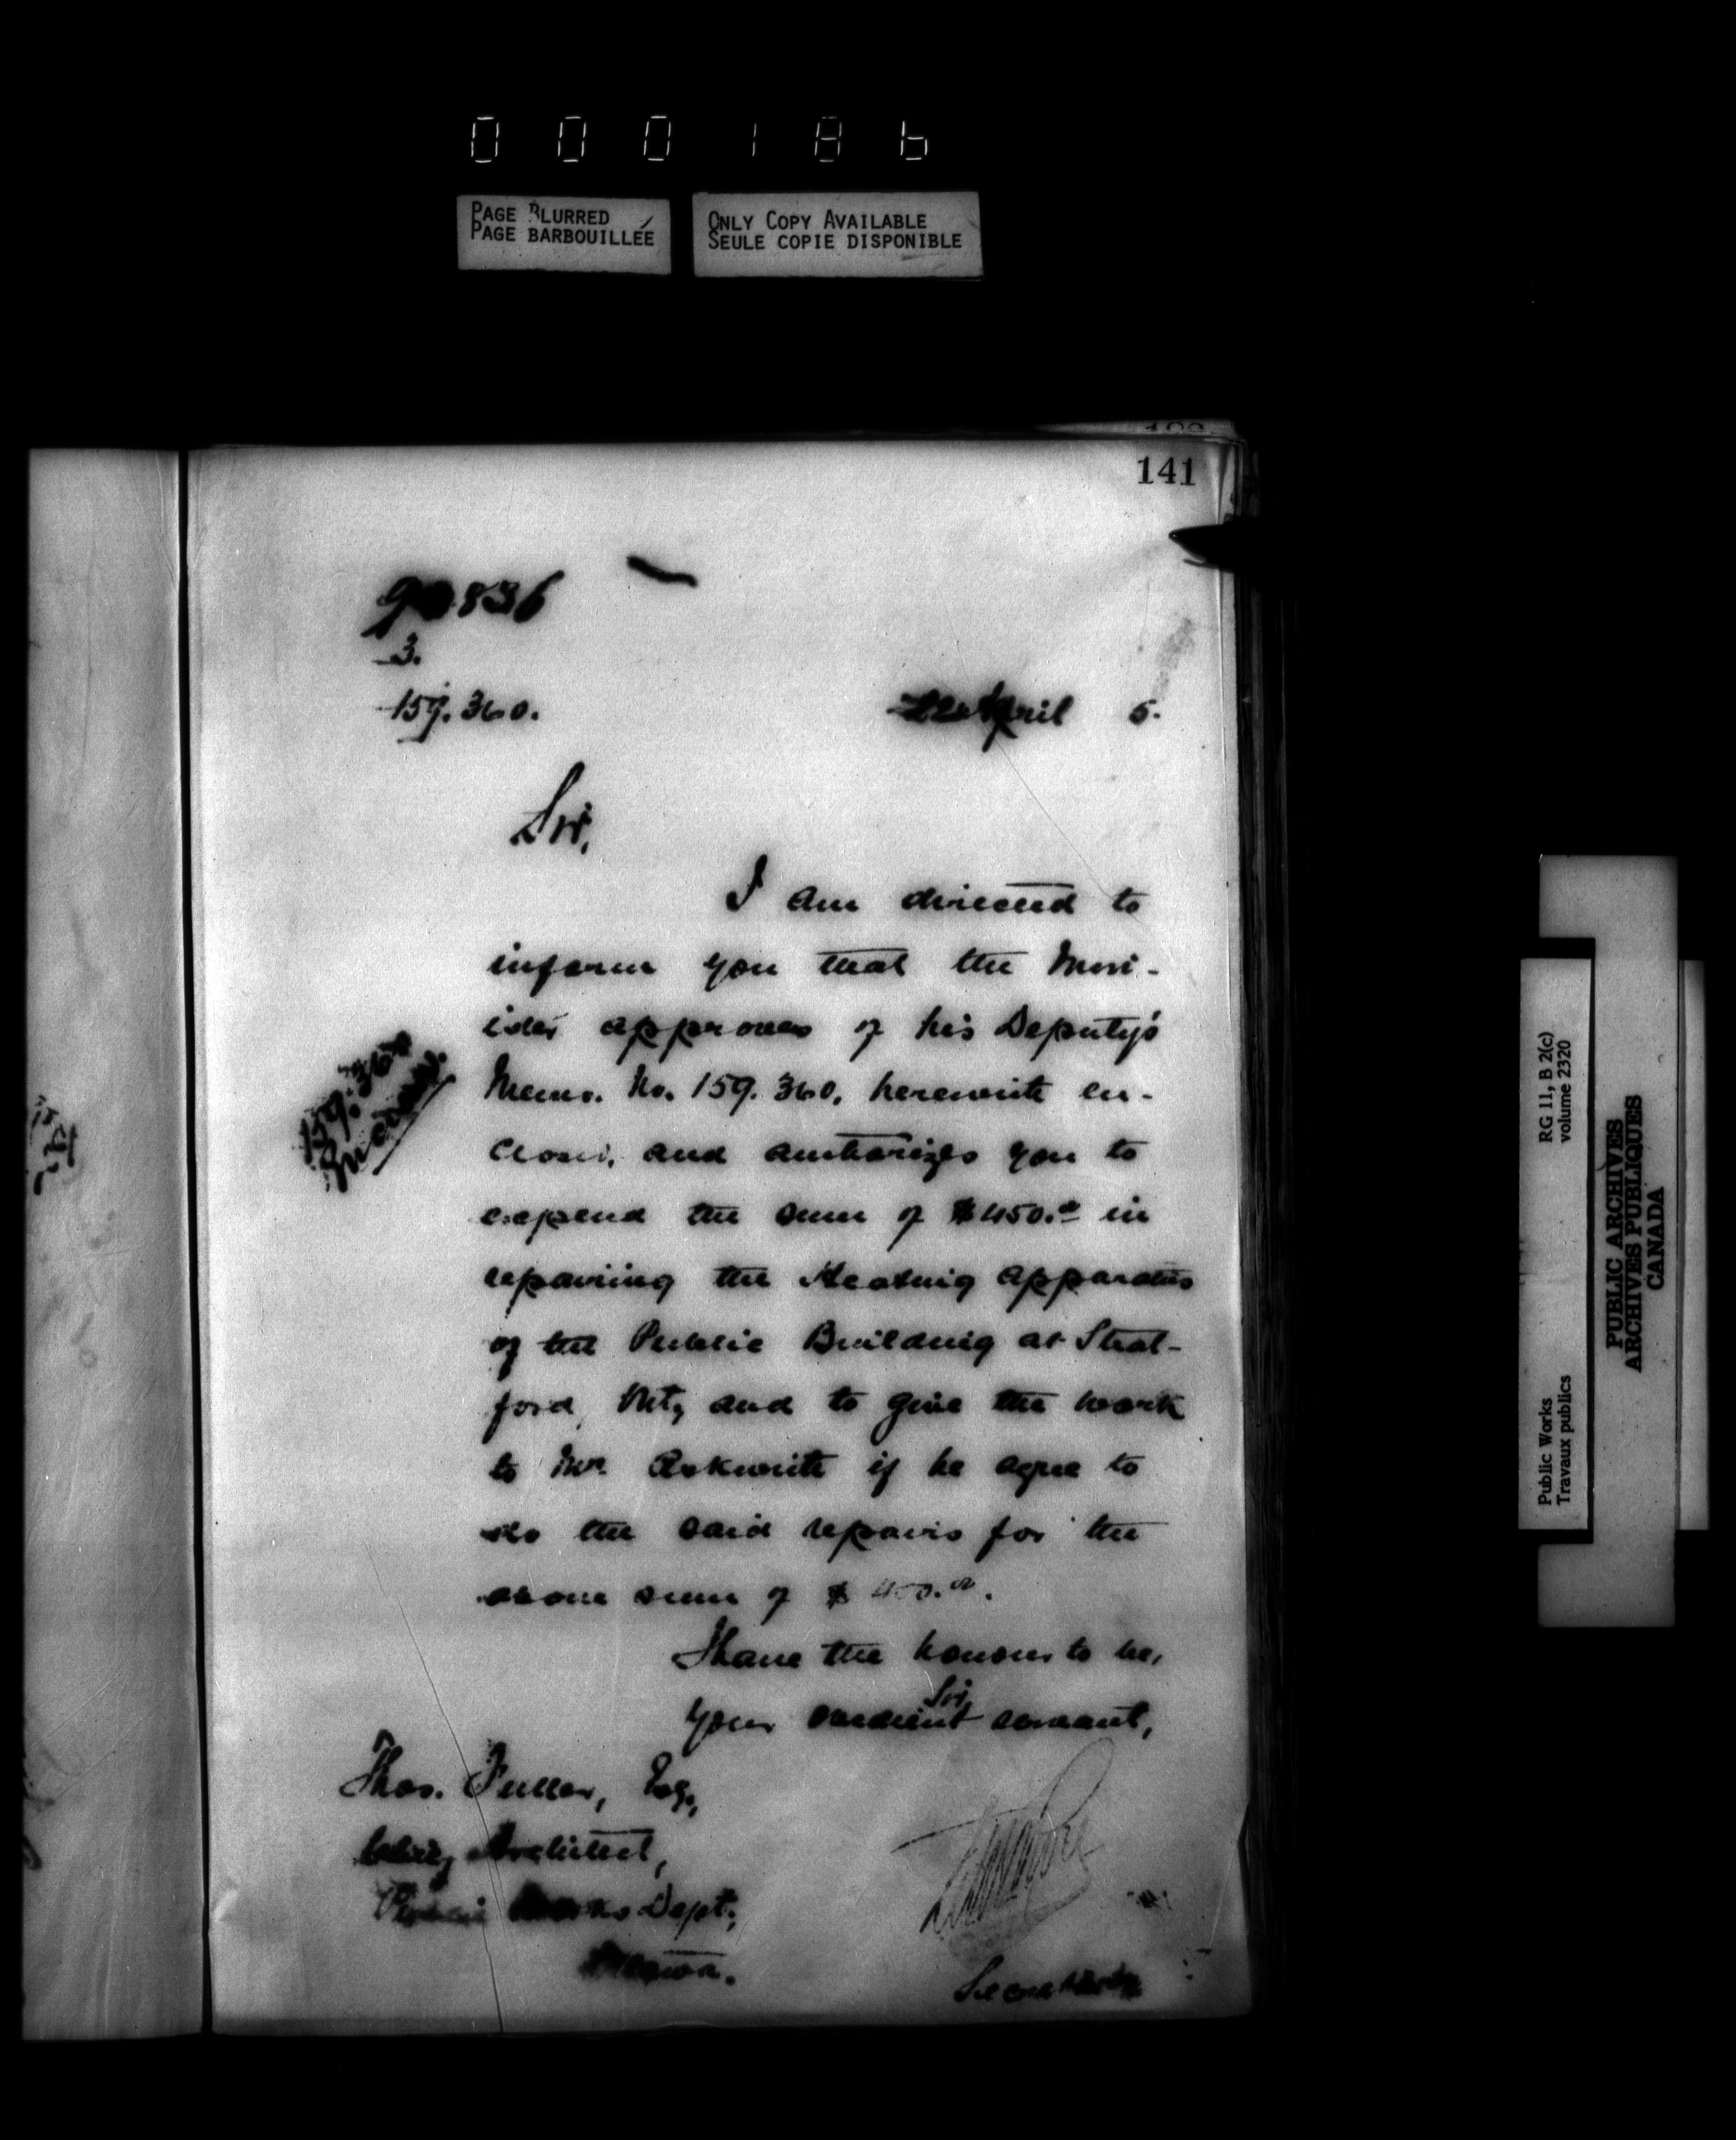 000186
PAGE BLURRED
PAGE BARBOUILLÉE
ONLY COPY AVAILABLE
SEULE COPIE DISPONIBLE
141
90836
3.
159.360.
April 5.
Sir,
I am directed to
inform you that the Min-
ister approves of his Deputy's
Memo. No. 159.360, herewith en-
closed, and authorizes you to
expend the sum of $450.00 in
repairing the Heating apparatus
of the Public Building at Strat-
ford, Ont, and to give the work
to Mr. Askwith if he agree to
do the said repairs for the
above sum of $450.00.
159.360
Enclosed.
I have the honour to be,
Sir,
Your obedient servant,
Thos. Fuller, Esq.,
Chief Architect,
Public Works Dept.,
Ottawa.
Secretary
RG 11, B 2(c)
volume 2320
Public Works
Travaux publics
PUBLIC ARCHIVES
ARCHIVES PUBLIQUES
CANADA